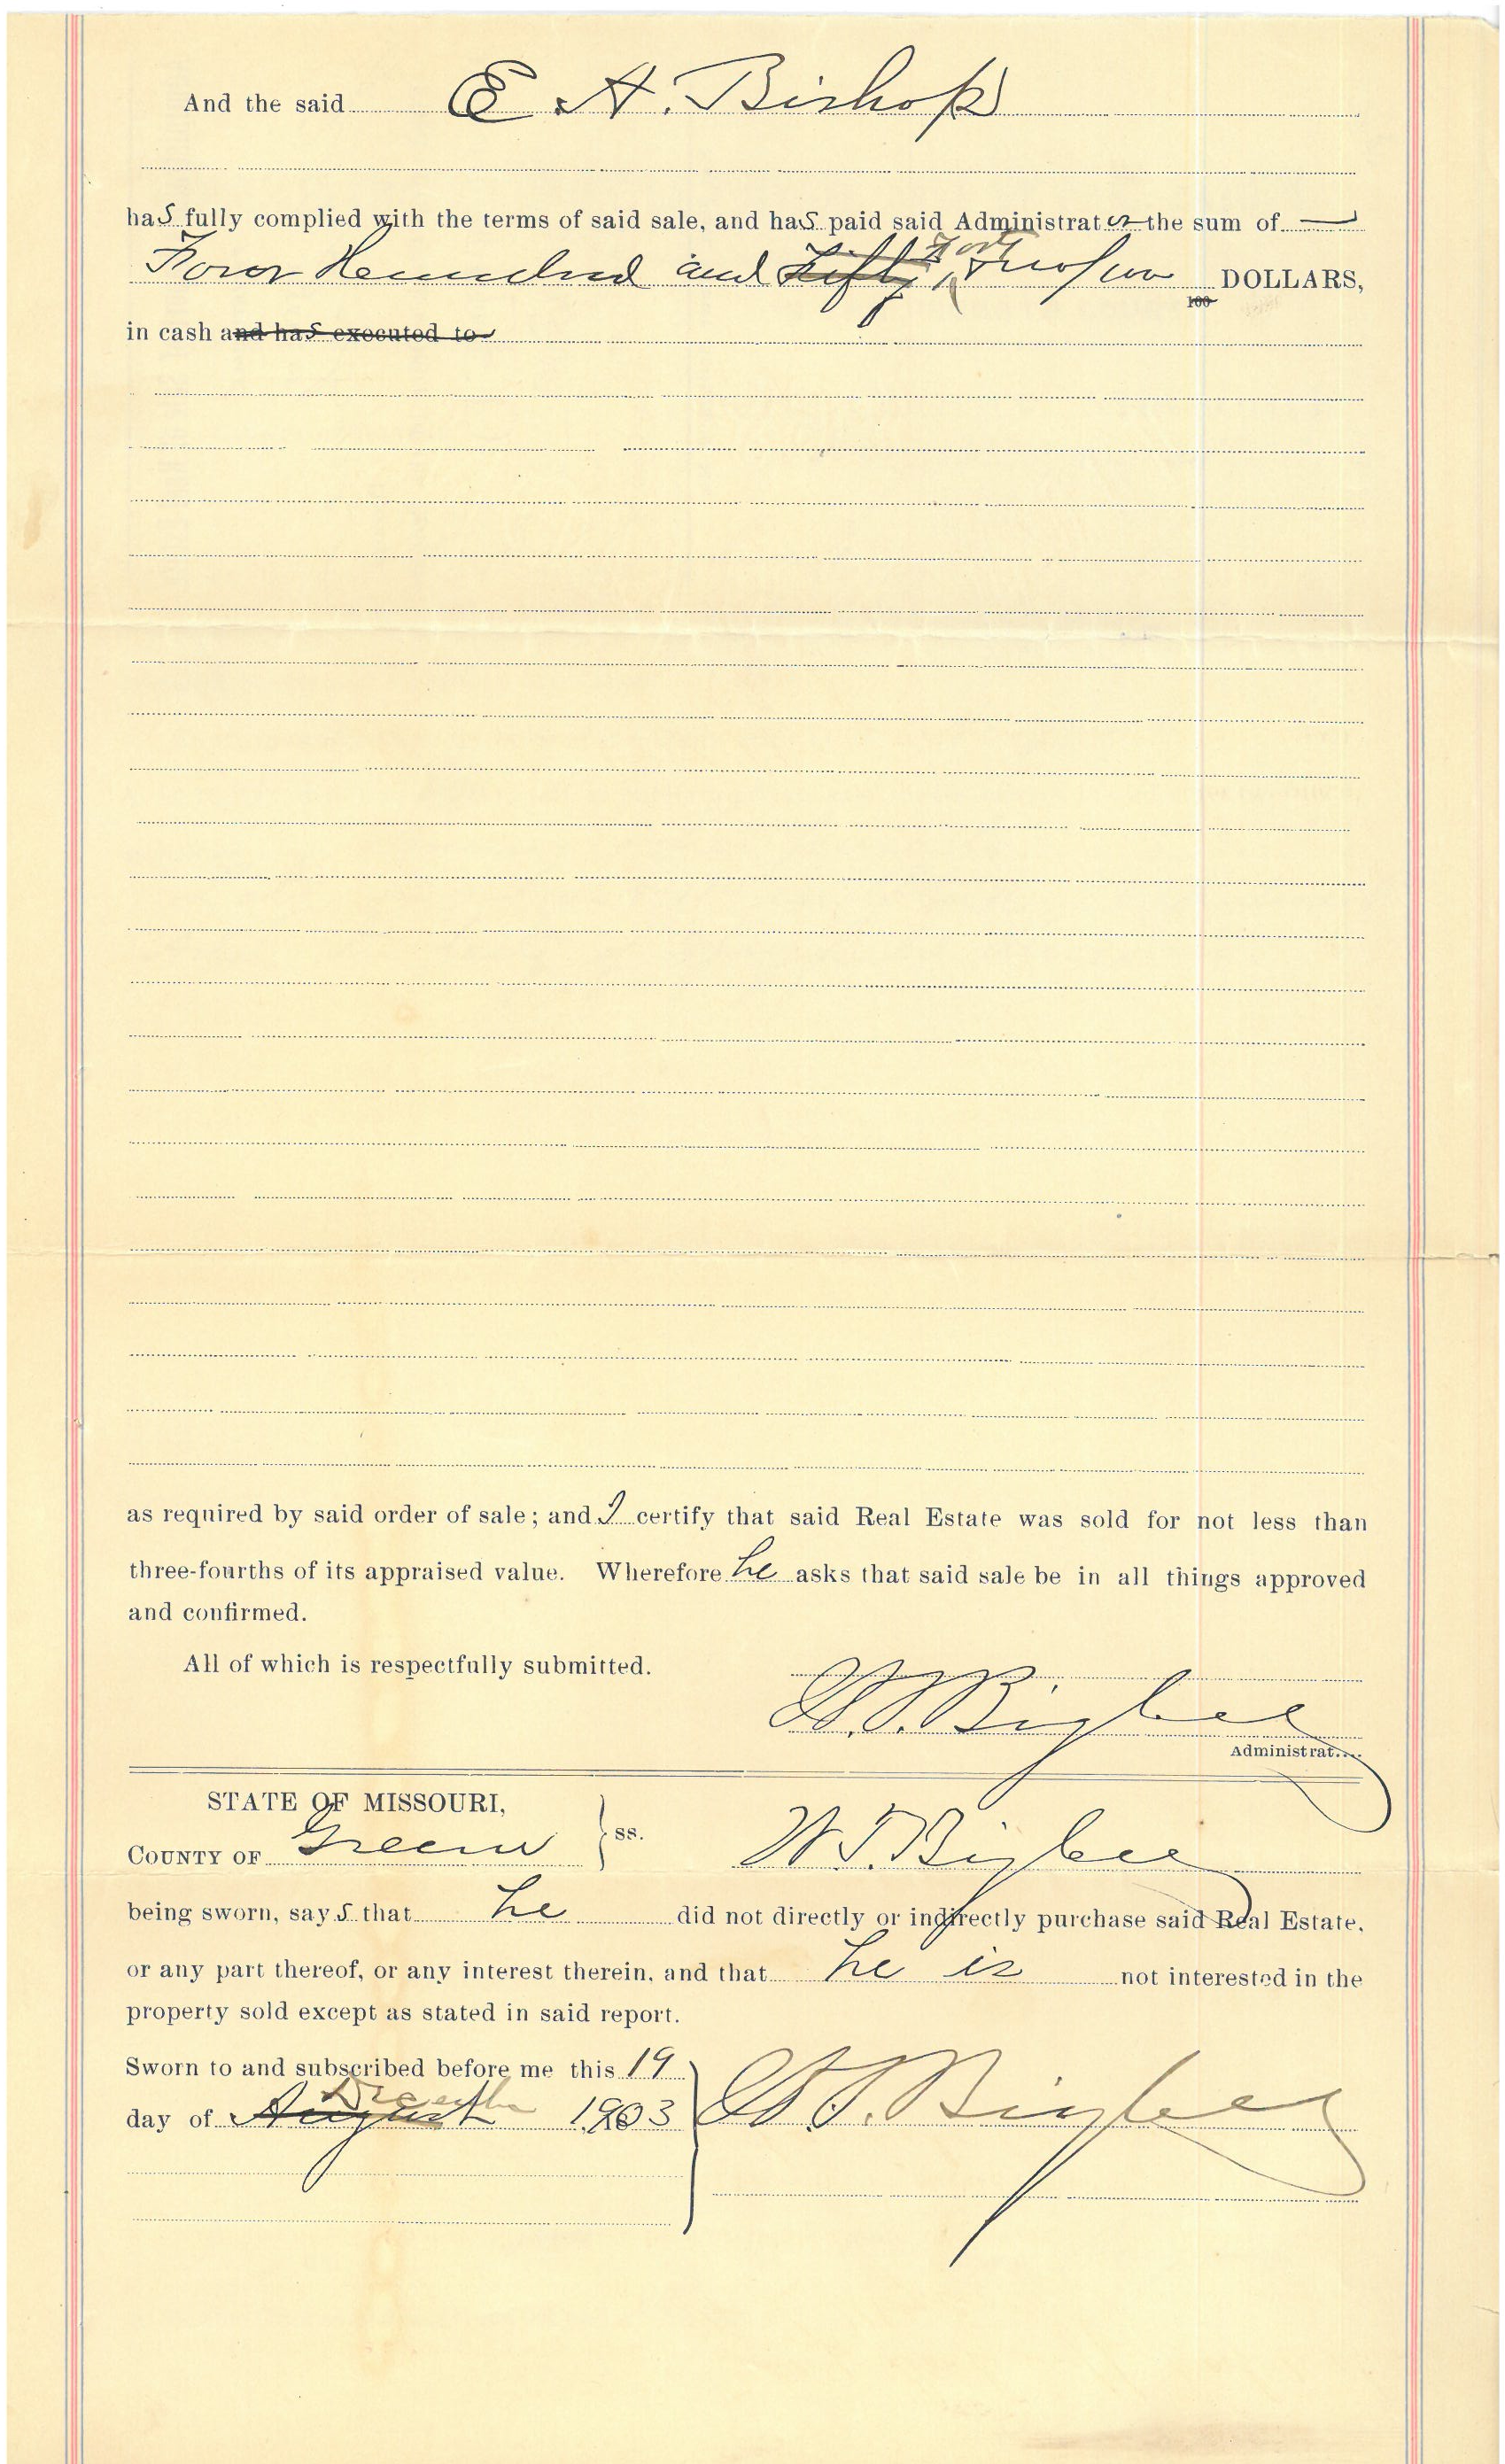 And the said E A. Bishop
has fully complied with the terms of said sale, and has paid said Administrator the sum of
Four Hundred and Fifty Forty Two 50/100 DOLLARS,
in cash and has executed to
as required by said order of sale; and I certify that said Real Estate was sold for not less than
three-fourths of its appraised value. Wherefore he asks that said sale be in all things approved
and confirmed.
All of which is respectfully submitted.
W. T. Bigbee
Administrat....
STATE OF MISSOURI,
COUNTY OF Greene } ss. W T. Bigbee
being sworn, says that he did not directly or indirectly purchase said Real Estate,
or any part thereof, or any interest therein, and that he is not interested in the
property sold except as stated in said report.
Sworn to and subscribed before me this 19
day of August 1903 W T. Bigbee